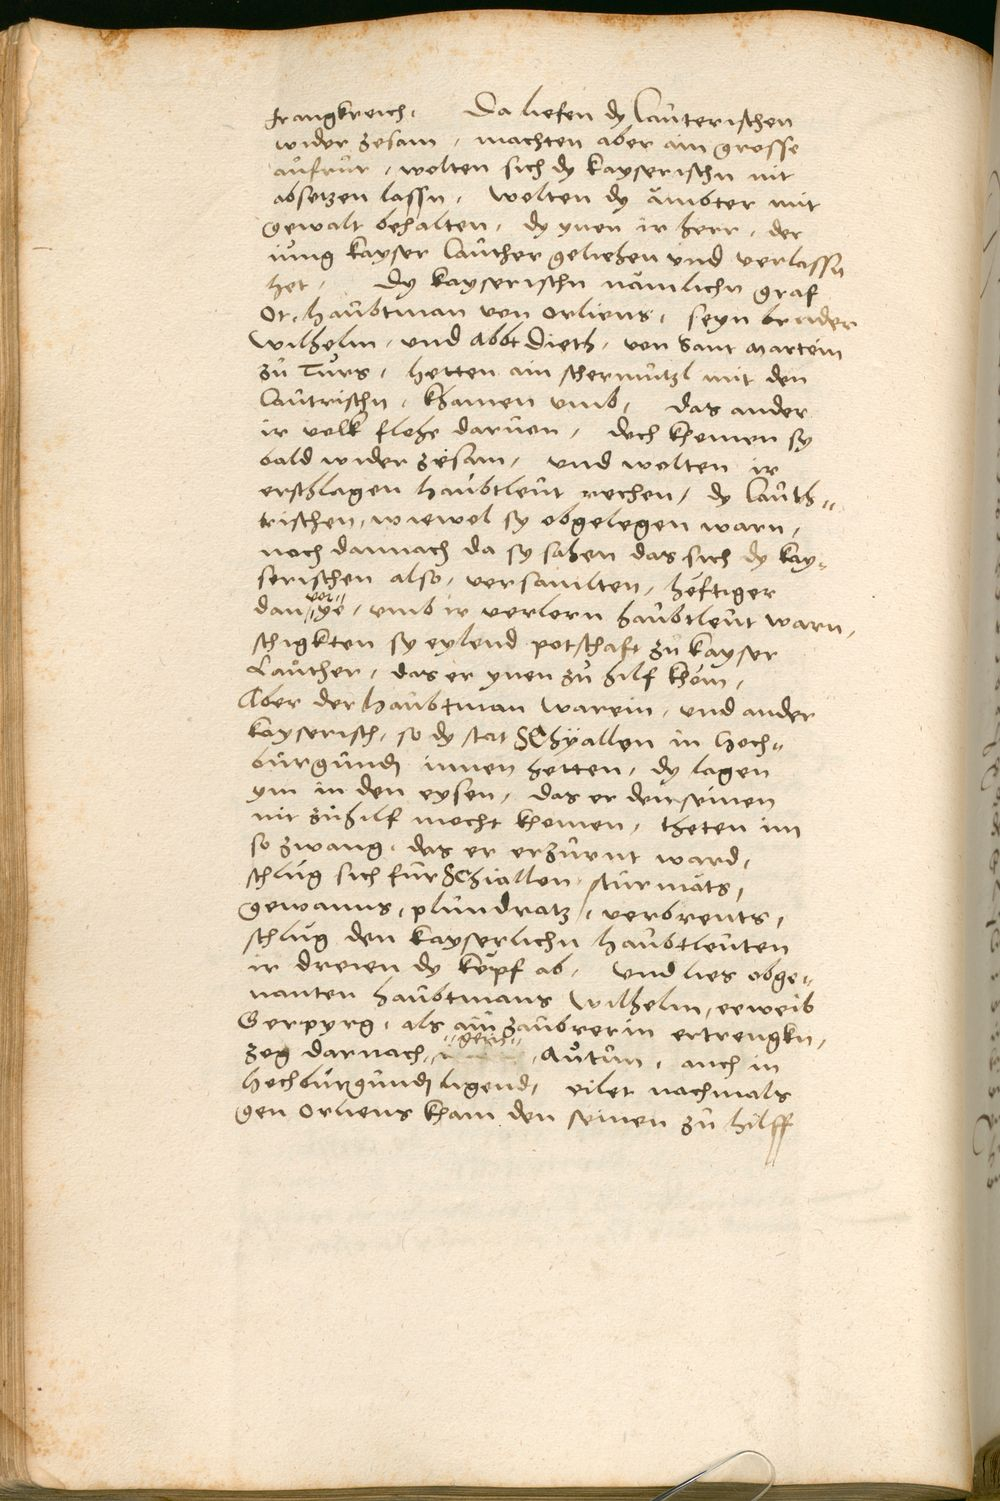 frangkreich. Da liefen dy Lauterischen
wider zesam, machten aber ain grosse
aufrur, wolten sich dy kayserischn nit
absetzen lassn, wolten dy ämbter mit
gewalt behalten, dy ynen ir herr, der
iung kayser Lauther geliehen und verlassn
het. Dy kayserischn nämlichn graf
Ot, haubtman von orliens, seyn bruder
Wilhelm, und Abbt Dieth, von Sant Martein
zu Turs, hetten ain schermützl mit den
Lautrischn, khamen umb, das ander
ir volk flohe daruen, doch khomen sy
bald wider zesam, und wolten ir
erschlagen haubtleut rechen, dy Lauth-
rischen, wiewol sy obgelegen warn,
noch dannach da sy sahen das sich dy kay-
serischen also, versamlten, heftiger
dan vor ye, umb ir verlorn haubtleut warn,
schigkten sy eylend potschaft zu kayser
Lauther, das er ynen zu hilf khöm,
Aber der haubtman Warein, und ander
kayserisch, so dy stat Schyallon in hoch-
burgund innen hetten, dy lagen
ym in den eysen, das er den seinen
nit zuhilf mocht khomen, theten im
so zwang, das er erzürnt ward,
schlug sich für Schiallon, sturmäts,
gewanns, plundratz, verbrents,
schlug den kayserlichn haubtleuten
ir dreien dy köpf ab, und lies obge-
nanten haubtmans Wilhelm, eeweib
Gerpyrg, als ain zaubrerin ertrengkn,
zog darnach gein Autun, auch in
hochburgund ligend, eilet nachmals
gen orliens kham den seinen zu hilff